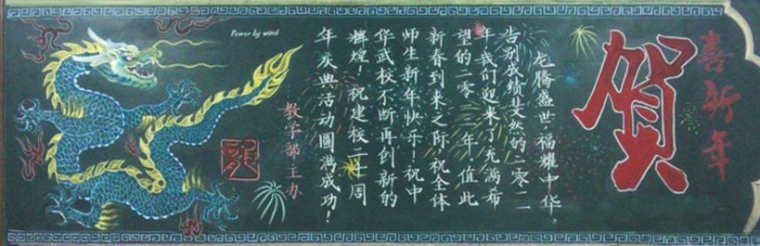 喜新年
贺
龙腾盛世福耀中华。
告别成绩斐然的二零一一
年我们迎来了充满希
望的二零 年,值此
新春到来之际,祝全体
师生新年快乐!祝中
华武校不断再创新的
辉煌!祝建校二十周
年庆典活动圆满成功!
教学部主办
Power by wind